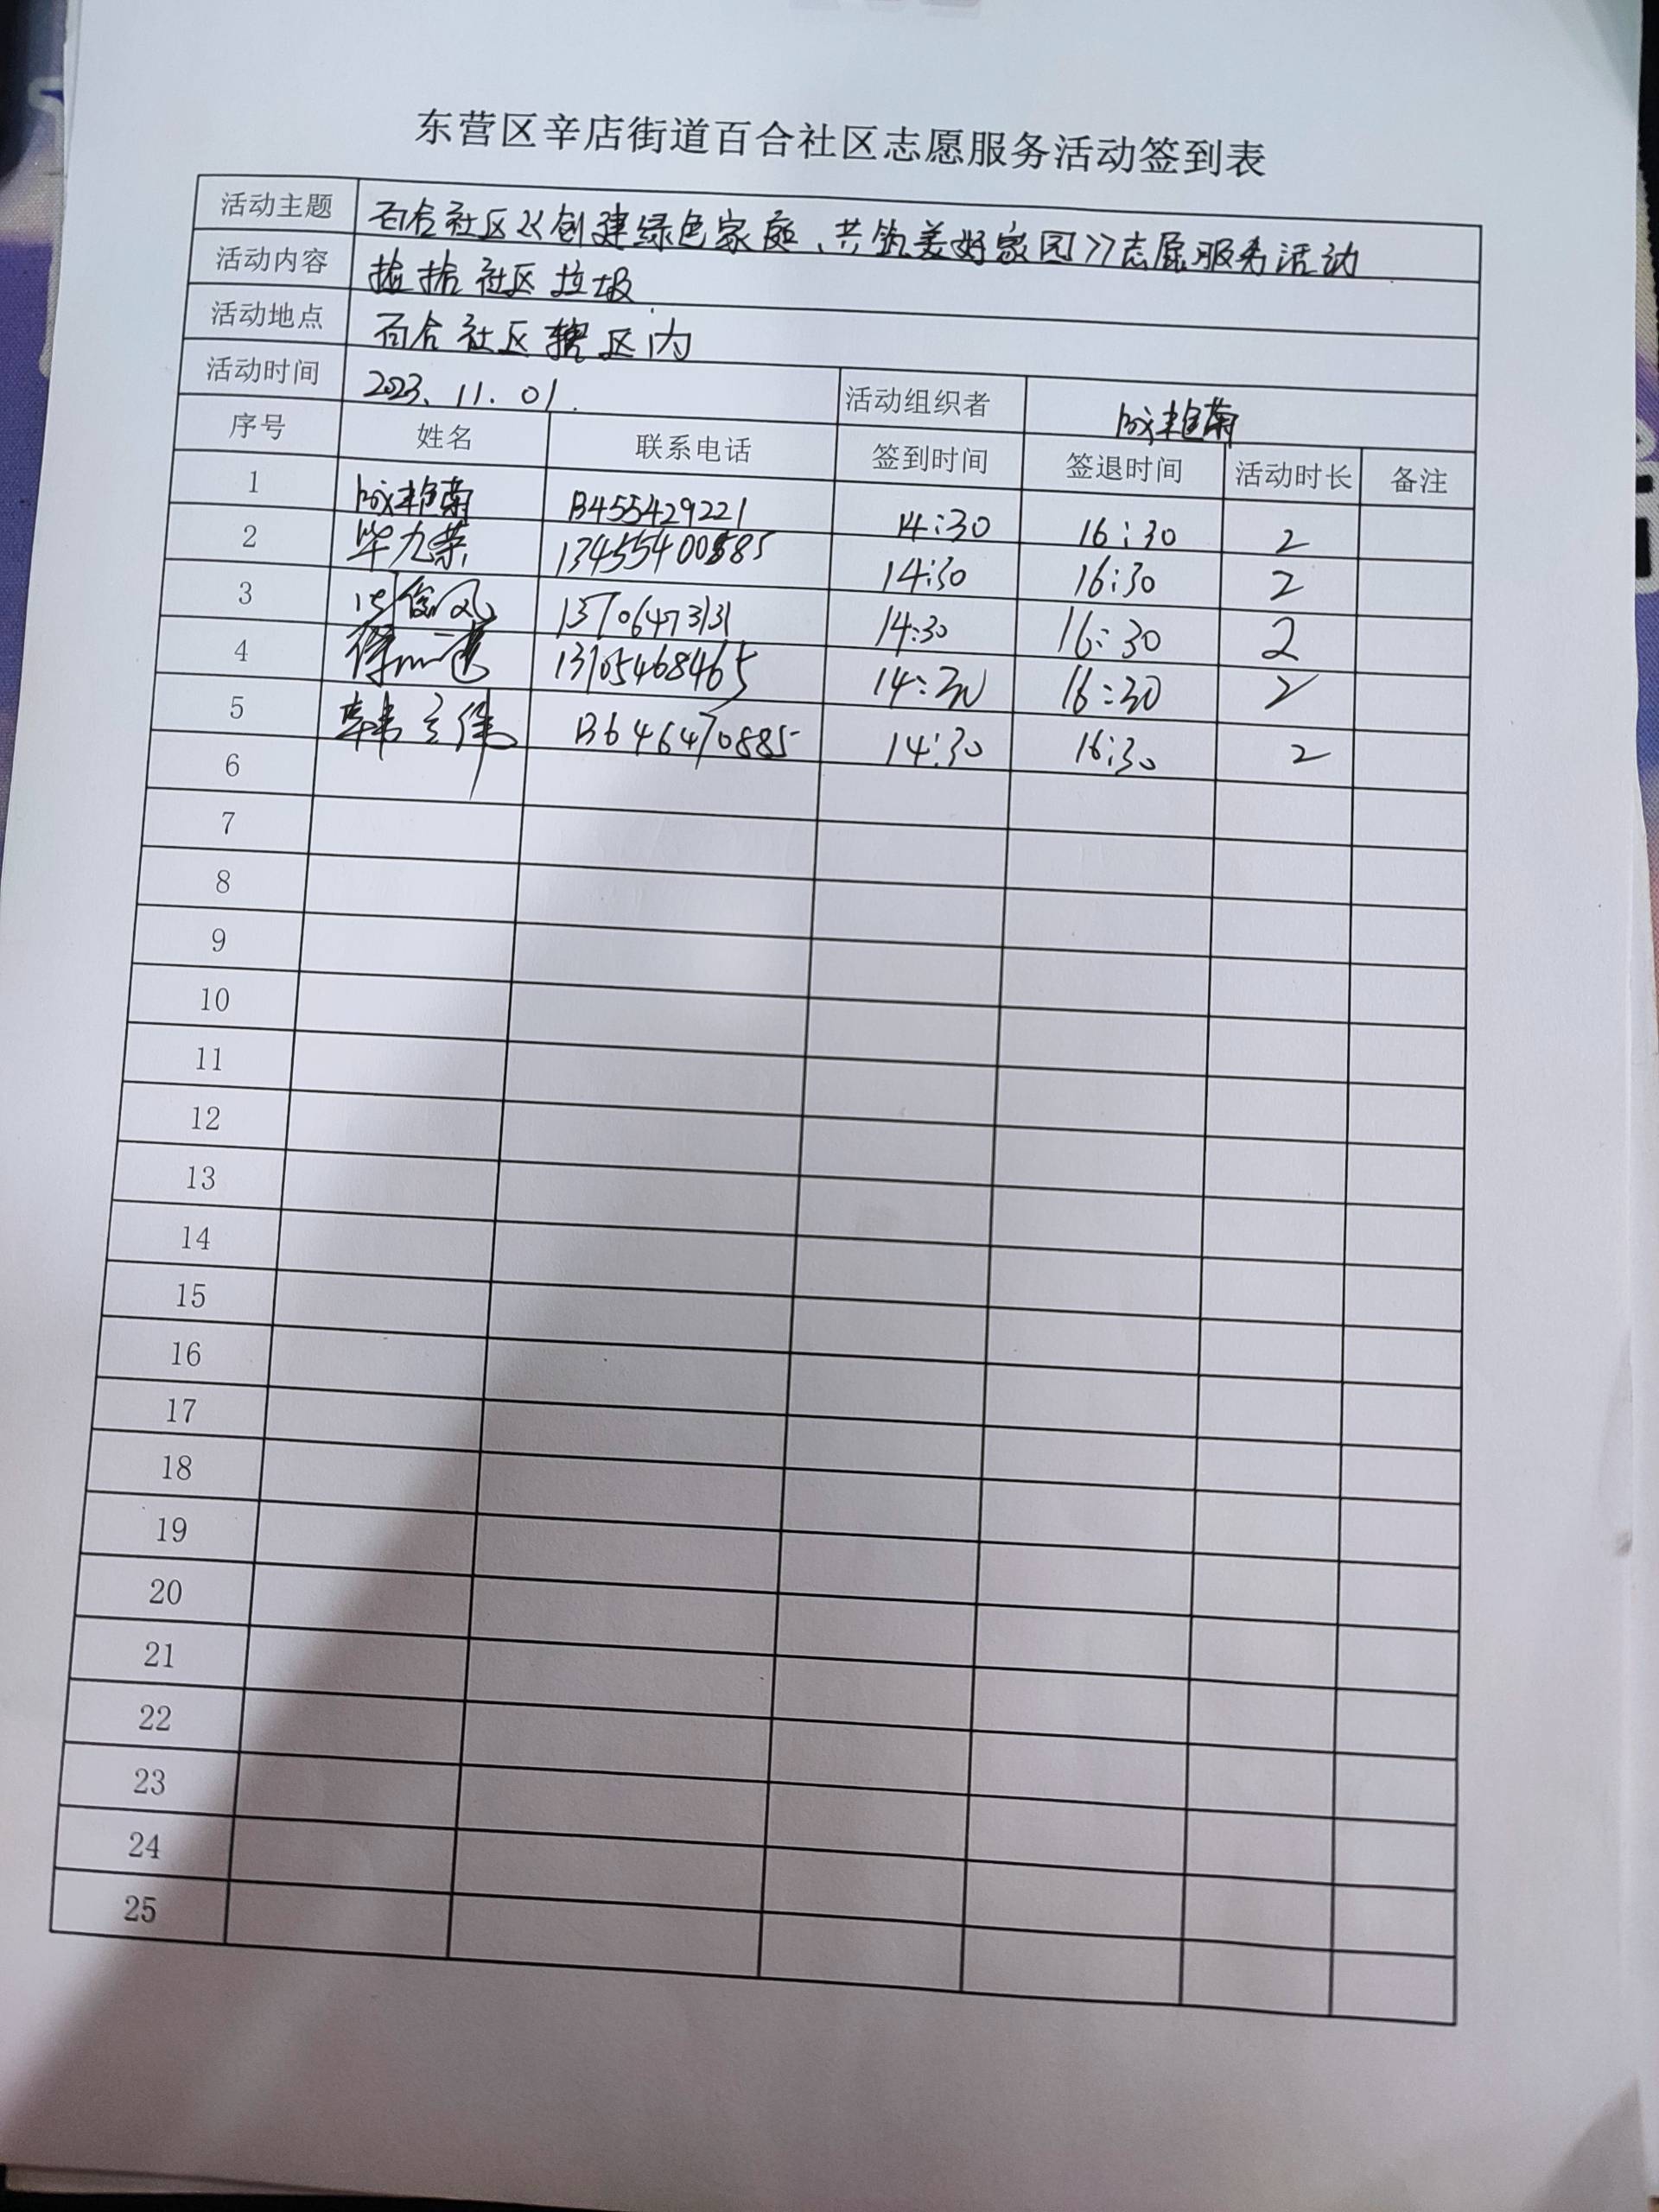 东营区辛店街道百合社区志愿服务活动签到表
活动主题 百合社区《创建绿色家庭、共筑美好家园》志愿服务活动
活动内容 捡拾社区垃圾
活动地点 百合社区辖区内
活动时间 2023.11.01. 活动组织者
序号 姓名 联系电话 签到时间 签退时间 活动时长 备注
1 13455429221 14:30 16:30 2
2 毕九荣 14:30 16:30 2
3 14:30 16:30 2
4 14:30 16:30 2
5 韩立伟 13646470885 14:30 16:30 2
6
7
8
9
10
11
12
13
14
15
16
17
18
19
20
21
22
23
24
25